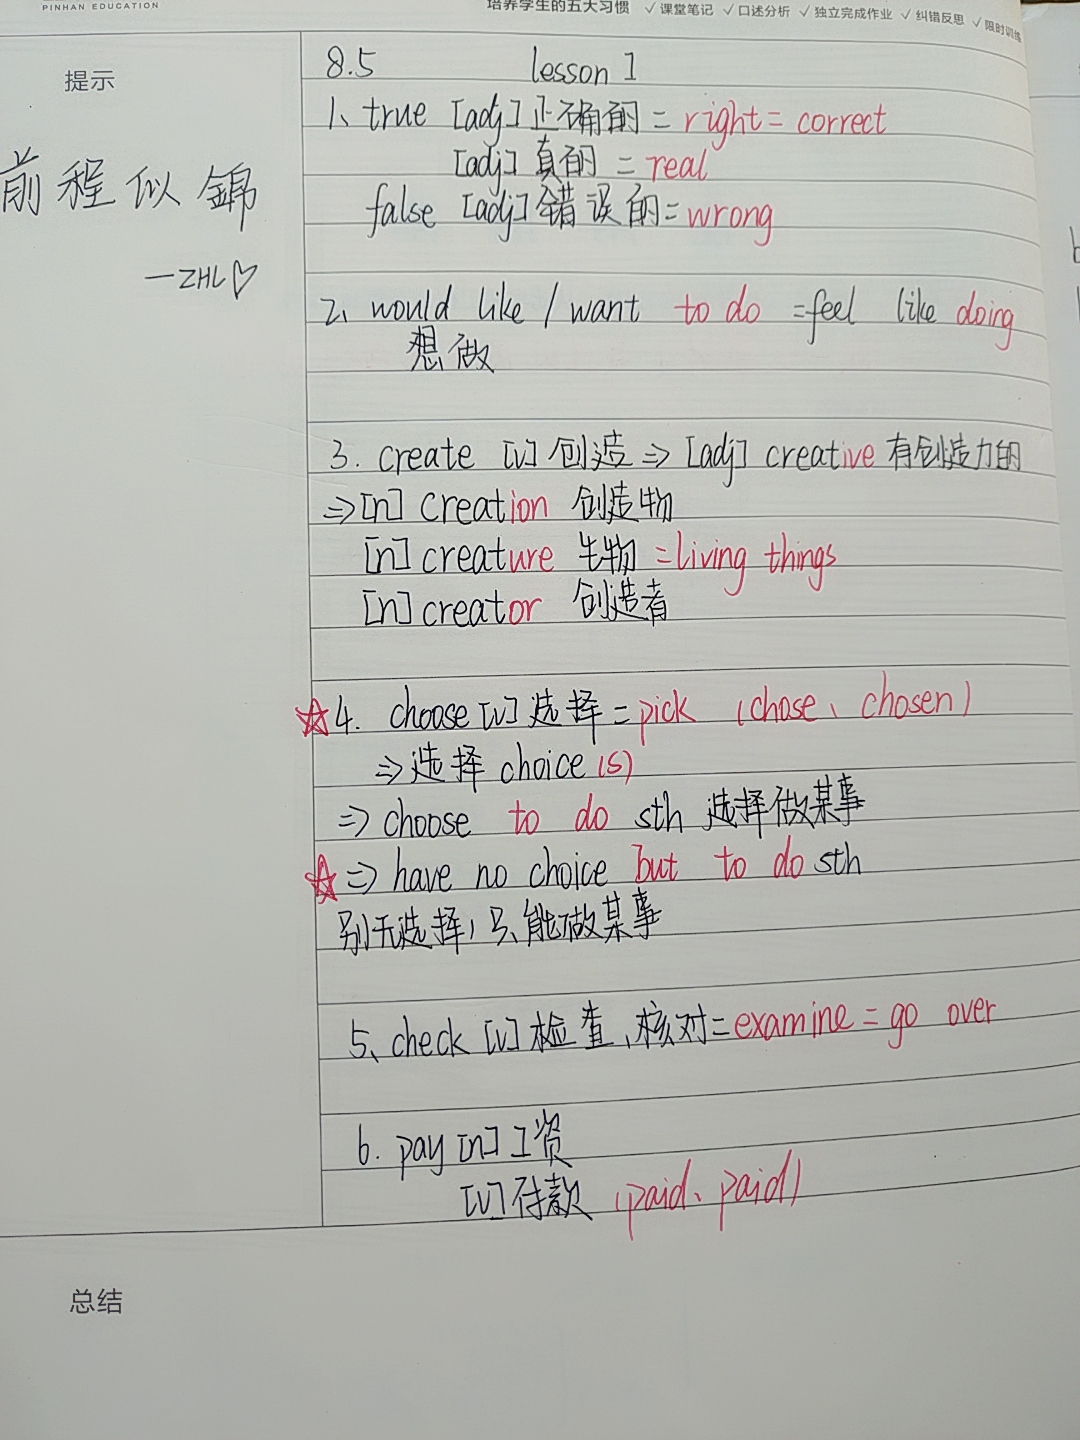 PINHAN EDUCATION
培养学生的五大习惯 ✓课堂笔记 ✓口述分析 ✓独立完成作业 ✓纠错反思 ✓限时训练
提示
前程似錦
—ZHL♡
8.5 lesson 1
1、true [adj]正确的 = right = correct
[adj]真的 = real
false [adj]错误的=wrong
2、would like / want to do =feel like doing
想做
3. create [v]创造 ⇒ [adj] creative 有创造力的
⇒[n] creation 创造物
[n] creature 生物 =living things
[n] creator 创造者
☆4. choose [v]选择 = pick (chose、chosen)
⇒选择 choice(s)
⇒ choose to do sth 选择做某事
☆⇒ have no choice but to do sth
别无选择,只能做某事
5、check [v]检查、核对=examine = go over
6. pay [n]工资
[v]付款 (paid、paid)
总结